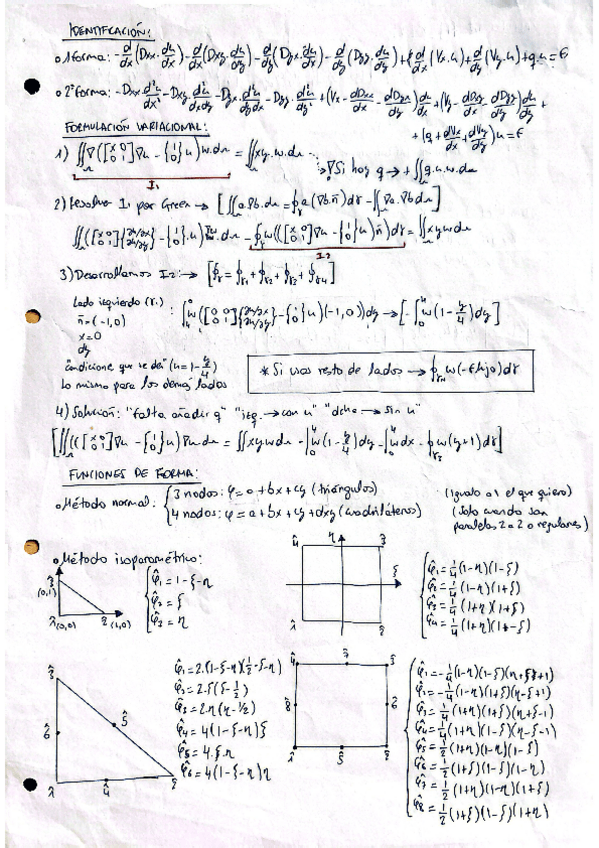 IDENTIFICACIÓN:
o 1ªforma: -d/dx(Dxx.du/dx)-d/dx(Dxy.du/dy)-d/dy(Dyx.du/dx)-d/dy(Dyy.du/dy)+d/dx(Vx.u)+d/dy(Vy.u)+q.u=F
o 2ªforma: -Dxx.d²u/dx²-Dxy.d²u/dxdy-Dyx.d²u/dydx-Dyy.d²u/dy²+(Vx-dDxx/dx-dDyx/dy)du/dx+(Vy-dDxy/dx-dDyy/dy)du/dy+
+(q+dVx/dx+dVy/dy)u=F
FORMULACIÓN VARIACIONAL:
1) ∬∇([x 0 0 1]∇u-{1 0}u)w.dx=∬xy.w.dx
¡Si hay q → +∬q.u.w.dx
I₁
2) Resolvo I₁ por Green → [∬a.∇b.dx=∮a(∇b.n̄)dγ-∬∇a.∇b.dx]
∬(([x 0 0 1]{du/dx du/dy}-{1 0}u)∇w.dx-∮w(([x 0 0 1]∇u-{1 0}u)n̄)dγ=∬xywdx
I₂
3) Desarrollamos I₂: → [∮γ=∮γ1+∮γ2+∮γ3+∮γ4]
Lado izquierdo (γ₁)
n̄=(-1,0)
x=0
dy
: ∫w(([0 0 0 1]{du/dx du/dy}-{1 0}u)(-1,0))dy → [-∫w(1-y/4)dy]
Condición que se da (u=1-y/4)
Lo mismo para los demás lados
* Si usas resto de lados → ∮w(-F fijo)dγ
4) Solución: "falta añadir q" "izq. → con u" "dcha → sin u"
[∬(([x 0 0 1]∇u-{1 0}u)∇w.dx=∬xywdx-∫w(1-y/4)dy-∫wdx-∮w(y+1)dγ]
FUNCIONES DE FORMA:
o Método normal:
3 nodos: φ=a+bx+cy (triángulos)
4 nodos: φ=a+bx+cy+dxy (cuadriláteros)
(Igualo a 1 el que quiero)
(Solo cuando son
paralelos 2 a 2 o regulares)
o Método isoparamétrico:
3̂ (0,1)
1̂ (0,0) 2̂ (1,0)
φ̂₁=1-ξ-η
φ̂₂=ξ
φ̂₃=η
4̂ η 3̂
ξ
1̂ 2̂
φ̂₁=1/4(1-η)(1-ξ)
φ̂₂=1/4(1-η)(1+ξ)
φ̂₃=1/4(1+η)(1+ξ)
φ̂₄=1/4(1+η)(1-ξ)
3̂
6̂ 5̂
1̂ 4̂ 2̂
φ̂₁=2.(1-ξ-η)(1/2-ξ-η)
φ̂₂=2.ξ(ξ-1/2)
φ̂₃=2η(η-1/2)
φ̂₄=4(1-ξ-η)ξ
φ̂₅=4.ξ.η
φ̂₆=4(1-ξ-η)η
4̂ 7̂ 3̂
8̂ 6̂
1̂ 5̂ 2̂
φ̂₁=-1/4(1-η)(1-ξ)(η+ξ+1)
φ̂₂=-1/4(1-η)(1+ξ)(η-ξ+1)
φ̂₃=1/4(1+η)(1+ξ)(η+ξ-1)
φ̂₄=1/4(1+η)(1-ξ)(η-ξ-1)
φ̂₅=1/2(1+η)(1-η)(1-ξ)
φ̂₆=1/2(1+ξ)(1-ξ)(1-η)
φ̂₇=1/2(1+η)(1-η)(1+ξ)
φ̂₈=1/2(1+ξ)(1-ξ)(1+η)